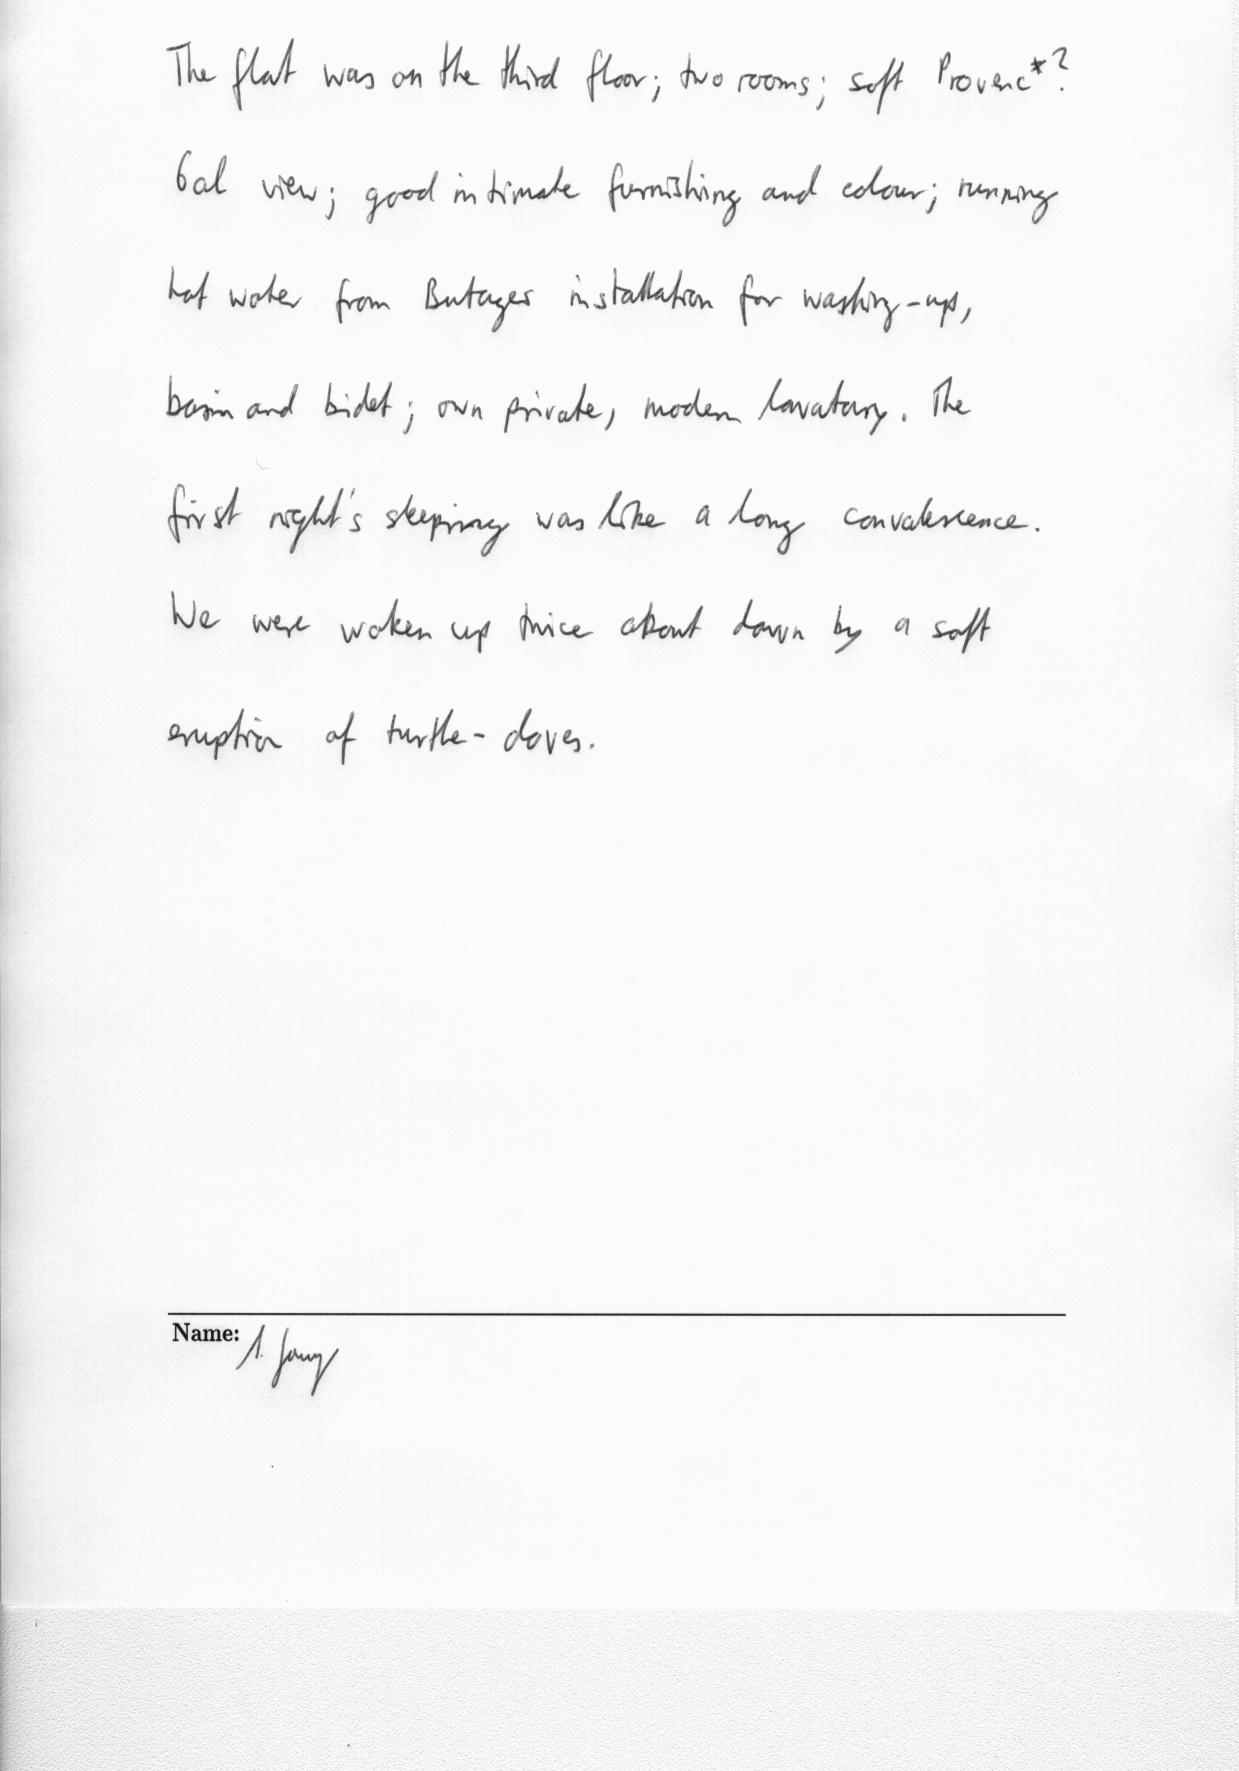 The flat was on the third floor; two rooms; soft Provenc*?
6al view; good intimate furnishing and colour; running
hot water from Butages installation for washing-up,
basin and bidet; own private, modern lavatary. The
first night's sleeping was like a long convalescence.
We were woken up twice about dawn by a soft
eruption of turtle-doves.
Name: